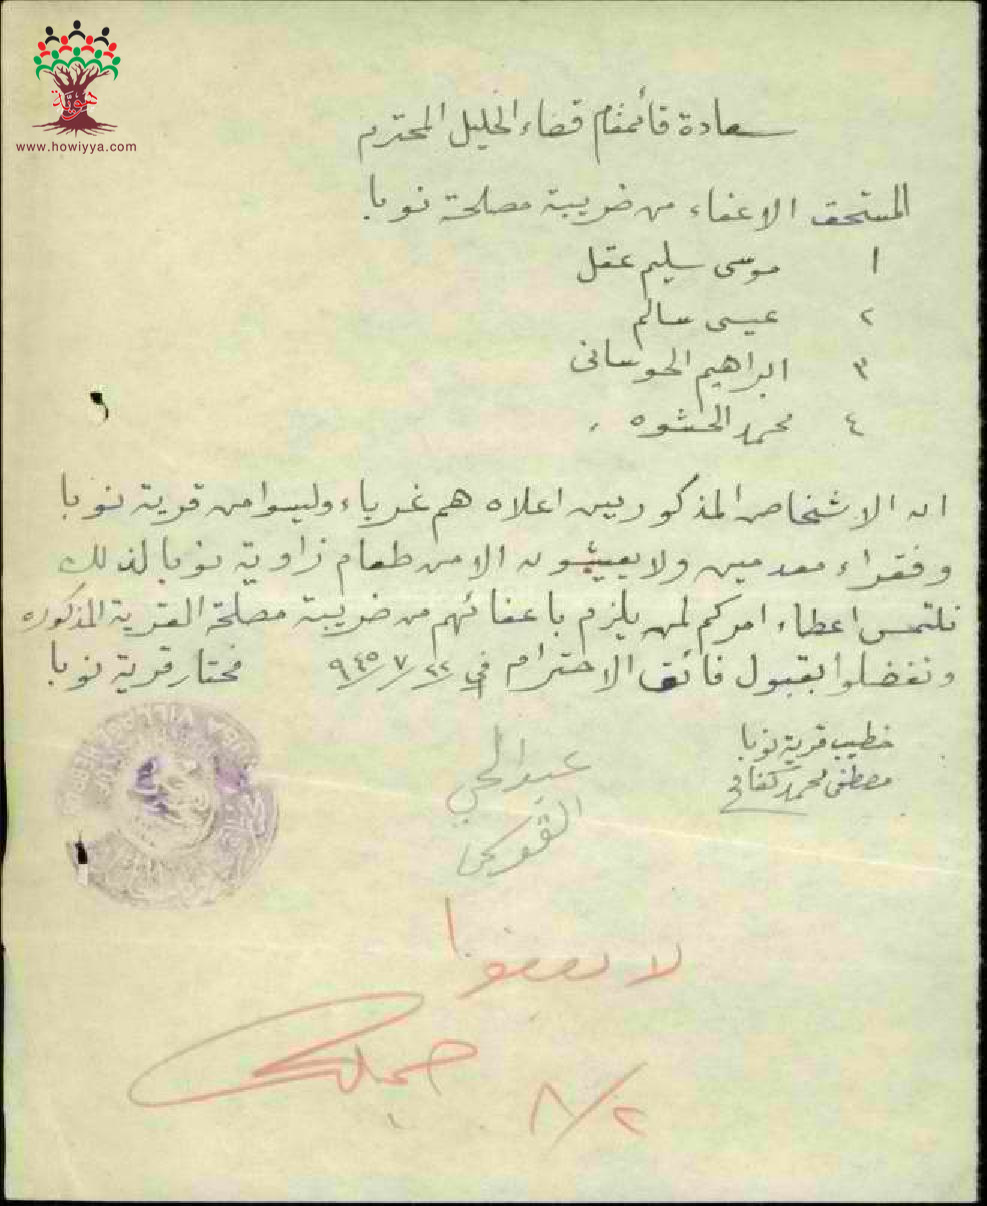 هوية
www.howiyya.com
سعادة قائمقام قضاء الخليل المحترم
المستحق الاعفاء من ضريبة مصلحة نوبا
١ موسى سليم عقل
٢ عيسى سالم
٣ ابراهيم الحوسانى
٤ محمد الحشوه .
ان الاشخاص المذكورين اعلاه هم غرباء وليسوا من قرية نوبا
وفقراء معدمين ولا يعيشون الا من طعام زاوية نوبا لذلك
نلتمس اعطاء امركم لمن يلزم باعفائهم من ضريبة مصلحة القرية المذكوره
وتفضلوا بقبول فائق الاحترام في ٢٢/٧/٩٤٥ مختار قرية نوبا
خطيب قرية نوبا
مصطفى محمد كفافي
عبد الحي
لا يعفوا
٢/٨